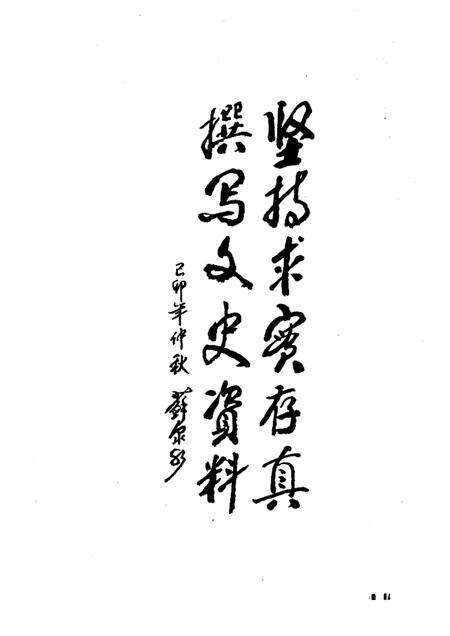 坚持求實存真
撰写文史資料
己卯年仲秋 薛泉